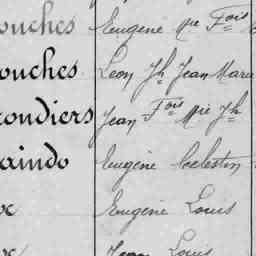 ouches Eugène Mie Fois
ouches Léon Jh Jean Marie
rondiers Jean Fois Mie Jh
aindo Eugène Célestin
x Eugène Louis
x Jean Louis